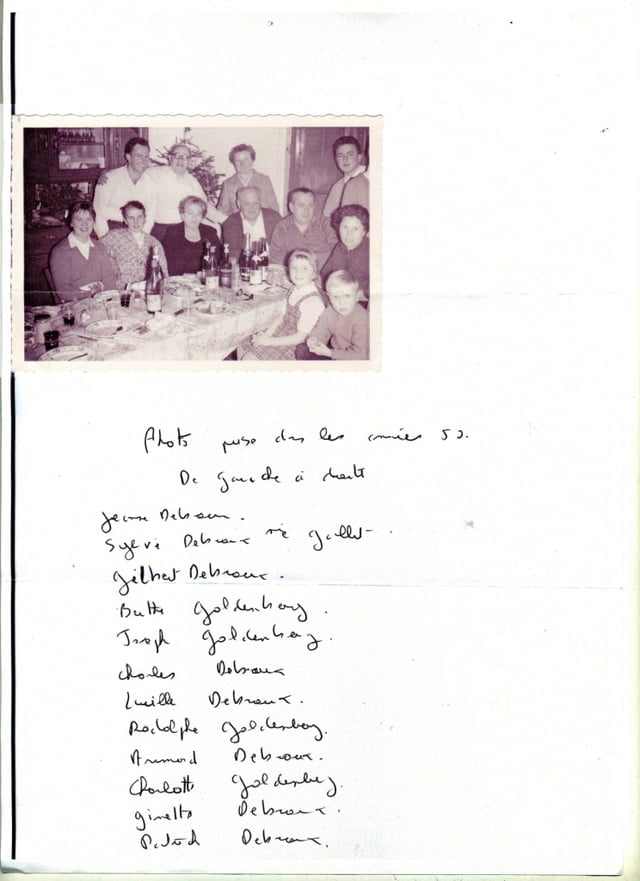 Photo prise dans les années 50.
De gauche à droite
Jeanne Debraux.
Sylvie Debraux née Gallet.
Gilbert Debraux.
Goldenberg.
Joseph Goldenberg.
Charles Debraux
Lucille Debraux.
Rodolphe Goldenberg.
Armand Debraux.
Charlotte Goldenberg.
Ginette Debraux.
Patrick Debraux.